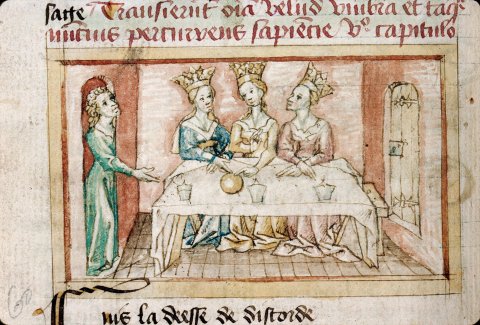 sage Transierūt oīa velud vmbra et
nuncius percurrens sapiencie Vº capitulo
la deesse de discorde